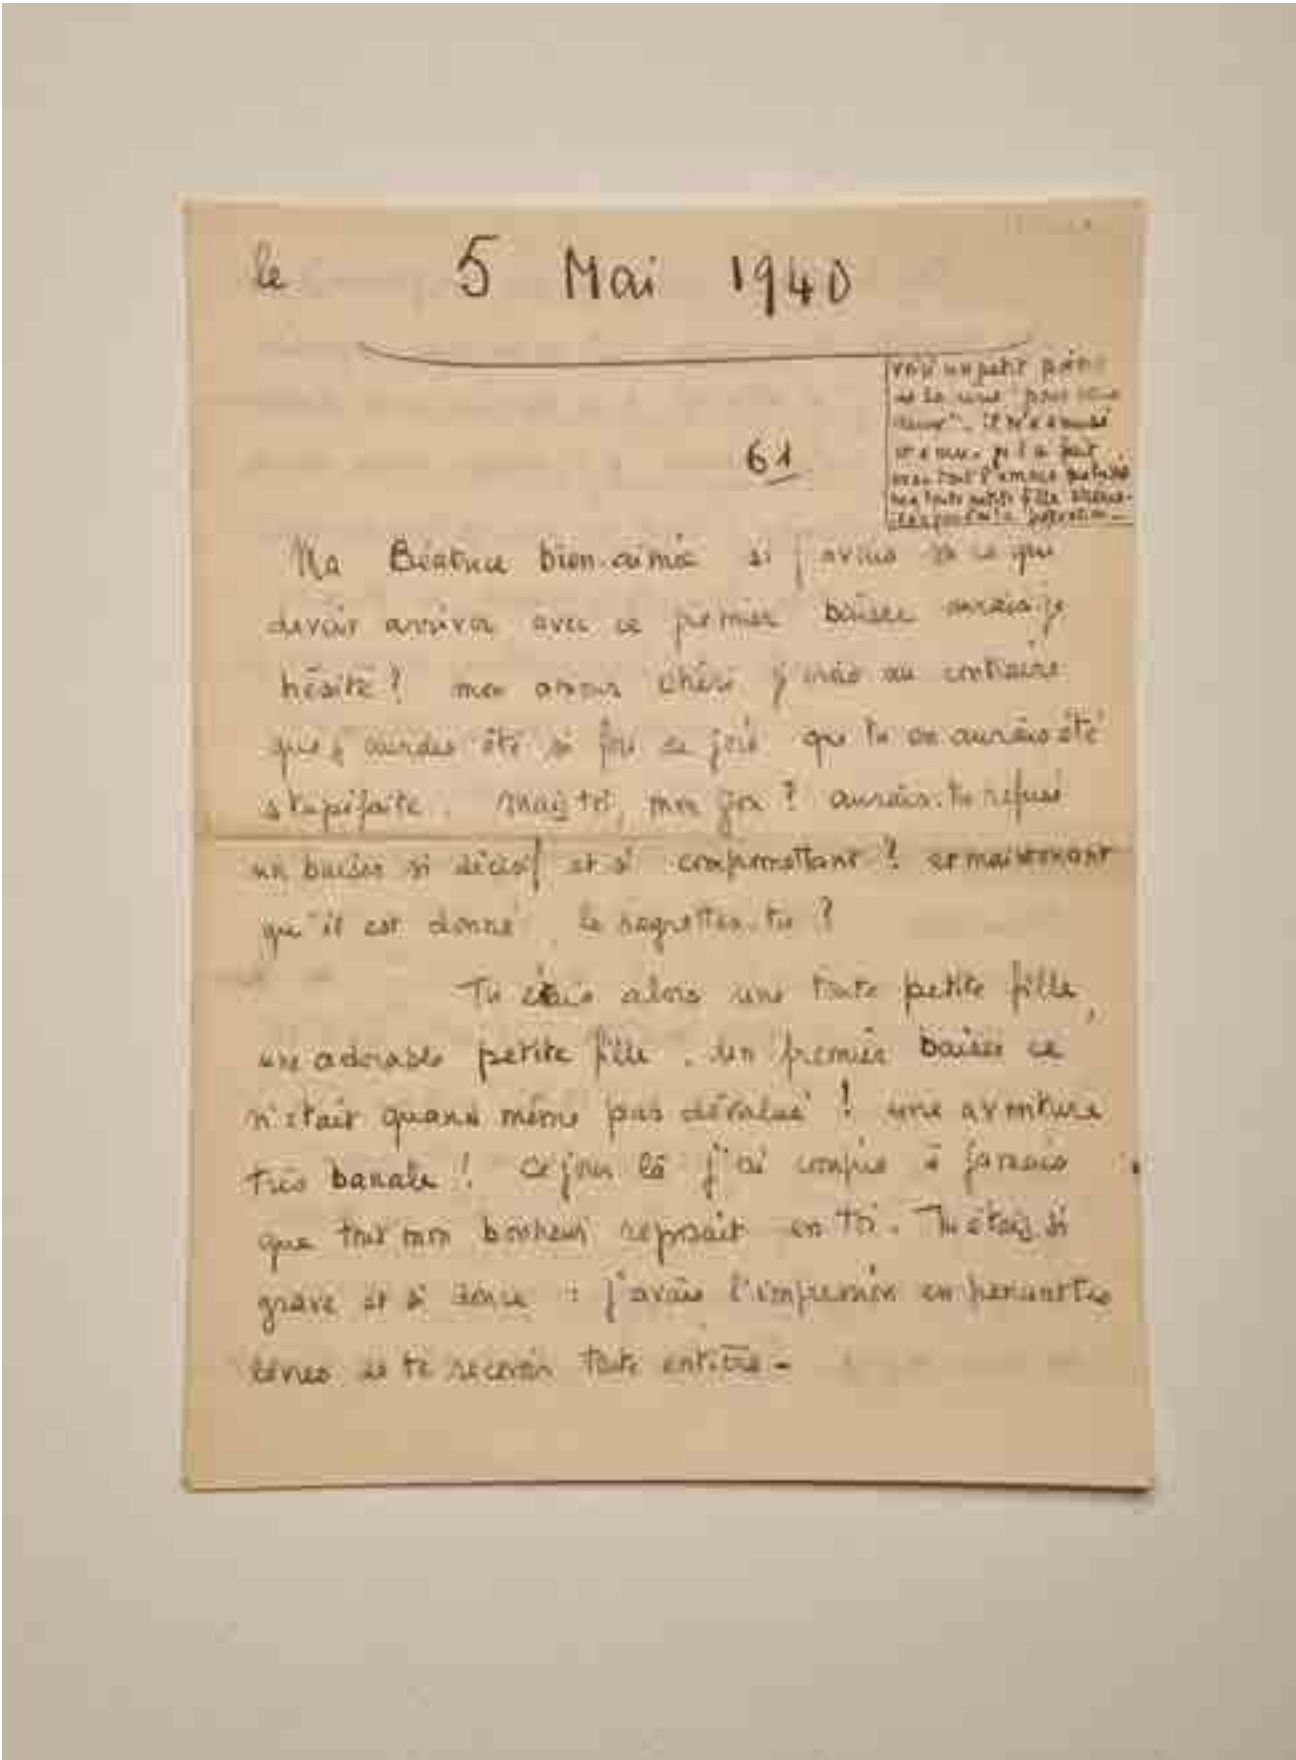 le 5 Mai 1940
Voici un petit poème
de la
deux". Il m'a amusé
et ému. je l'ai fait
avec tout l'amour
ma toute petite fille
61
Ma Béatrice bien-aimée si j'avais su ce que
devait arriver avec ce premier baiser aurais-je
hésité? mon amour chéri j'crois au contraire
que j'aurais été si fou de joie que tu en aurais été
stupéfaite. Mais toi, mon jox? aurais-tu refusé
un baiser si décisif et si compromettant? et maintenant
qu'il est donné, le regrettes-tu?
Tu étais alors une toute petite fille,
une adorable petite fille. Un premier baiser ce
n'était quand même pas dévalué! une aventure
très banale! Ce jour là j'ai compris à jamais
que tout mon bonheur reposait en toi. Tu étais si
grave et si douce : j'avais l'impression en prenant tes
lèvres de te recevoir toute entière-